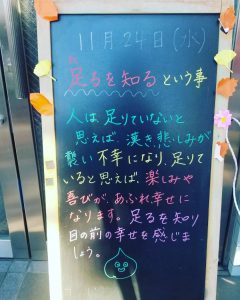 11月24日(水)
足るを知るという事
人は、足りていないと
思えば、嘆き、悲しみが
襲い不幸になり、足りて
いると思えば、楽しみや
喜びが、あふれ幸せに
なります。足るを知り
目の前の幸せを感じま
しょう。